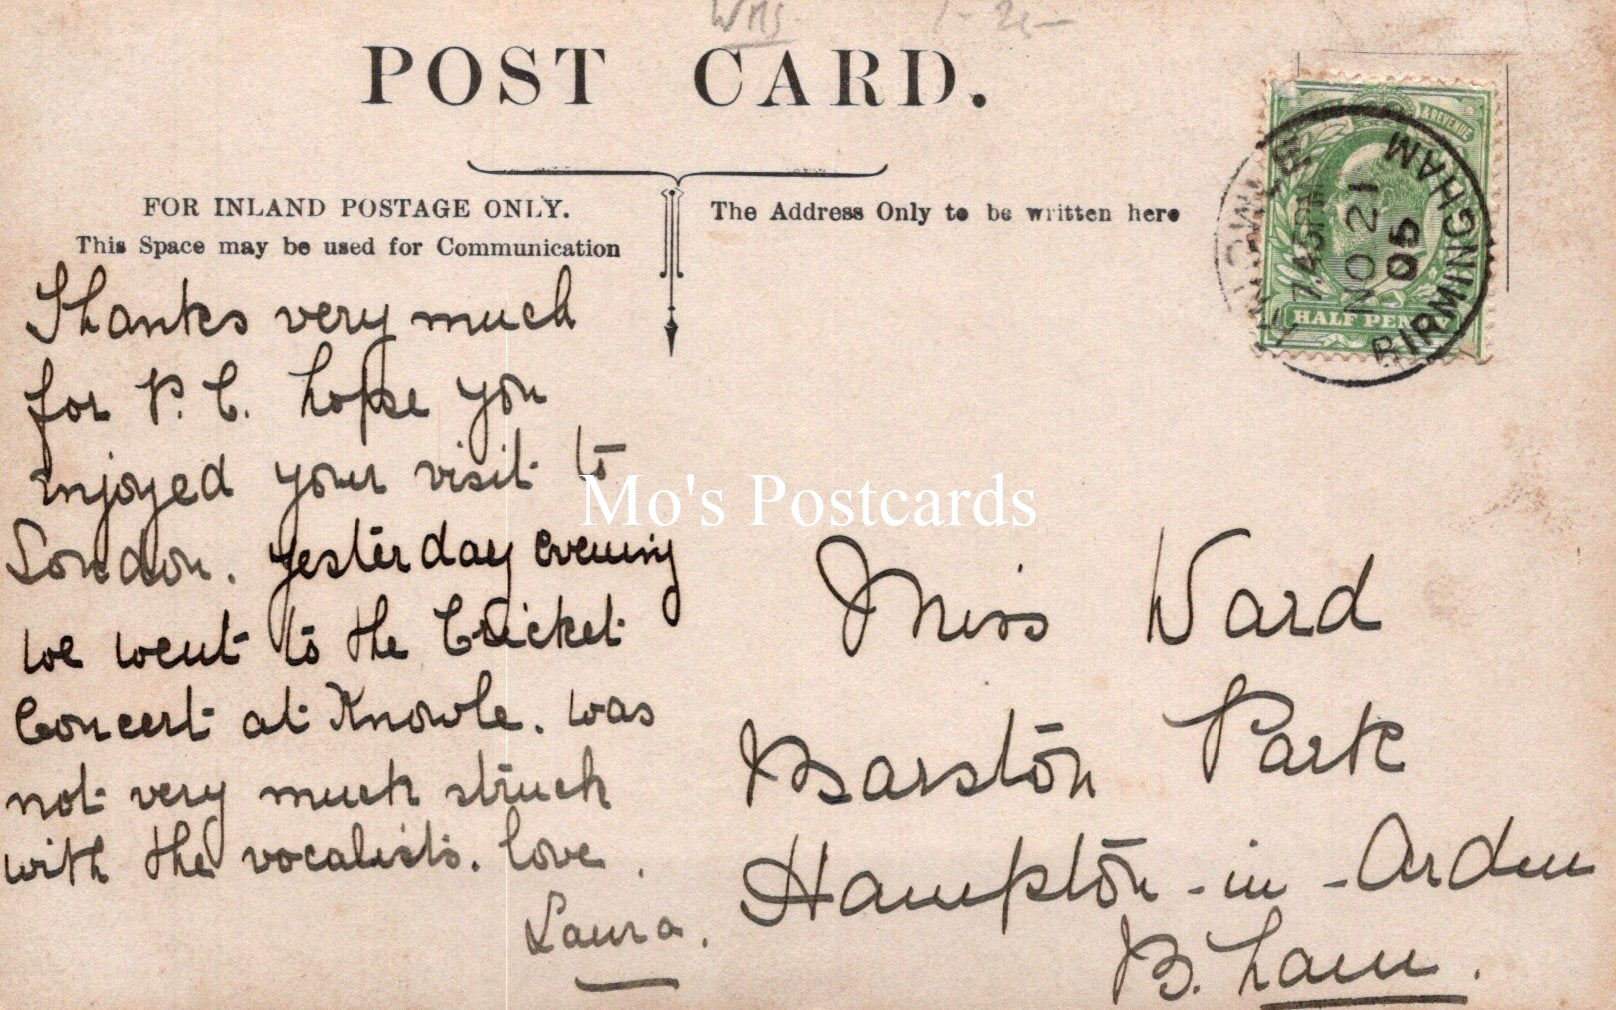 WMS
POST CARD.
FOR INLAND POSTAGE ONLY.
This Space may be used for Communication
The Address Only to be written here
& REVENUE
HALF PENNY
BIRMINGHAM
7.45PM
NO 21
05
Thanks very much
for P.C. hope you
enjoyed your visit to
London. Yesterday evening
we went to the Cricket
Concert at Knowle. was
not very much struck
with the vocalists. love.
Laura.
Miss Ward
Barston Park
Hampton-in-Arden
B.ham.
Mo's Postcards